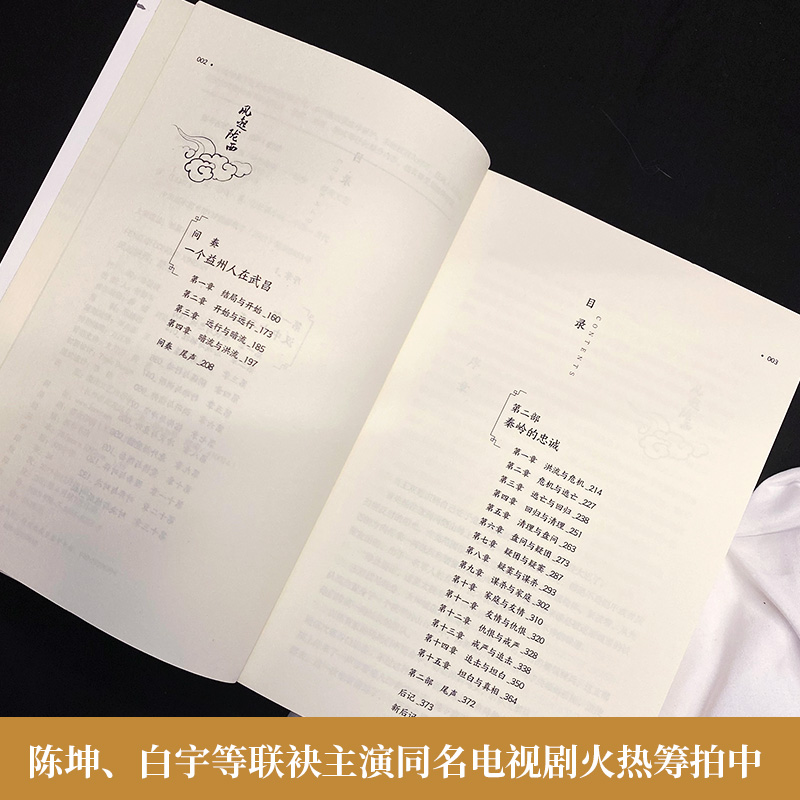 002
风起陇西
间奏
一个益州人在武昌
第一章 结局与开始_160
第二章 开始与远行_173
第三章 远行与暗流_185
第四章 暗流与洪流_197
间奏 尾声_208
003
目录
CONTENTS
第二部
秦岭的忠诚
第一章 洪流与危机_214
第二章 危机与逃亡_227
第三章 逃亡与回归_238
第四章 回归与清理_251
第五章 清理与盘问_263
第六章 盘问与疑团_273
第七章 疑团与疑窦_287
第八章 疑窦与谋杀_293
第九章 谋杀与家庭_302
第十章 家庭与友情_310
第十一章 友情与仇恨_320
第十二章 仇恨与戒严_328
第十三章 戒严与追击_338
第十四章 追击与坦白_350
第十五章 坦白与真相_364
第二部 尾声_372
后记_373
新后记
陈坤、白宇等联袂主演同名电视剧火热筹拍中